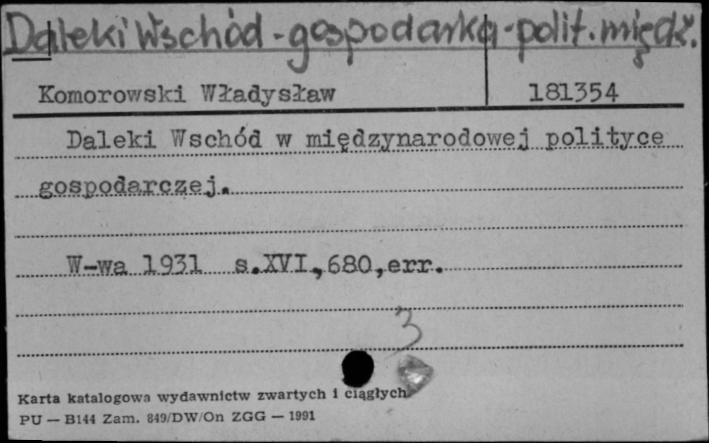 Daleki Wschód - gospodarka - polit. międz.
Komorowski Władysław 181354
Daleki Wschód w międzynarodowej polityce
gospodarczej.
W-wa 1931 s.XVI,680,err.
3
Karta katalogowa wydawnictw zwartych i ciągłych
PU — B144 Zam. 849/DW/On ZGG — 1991